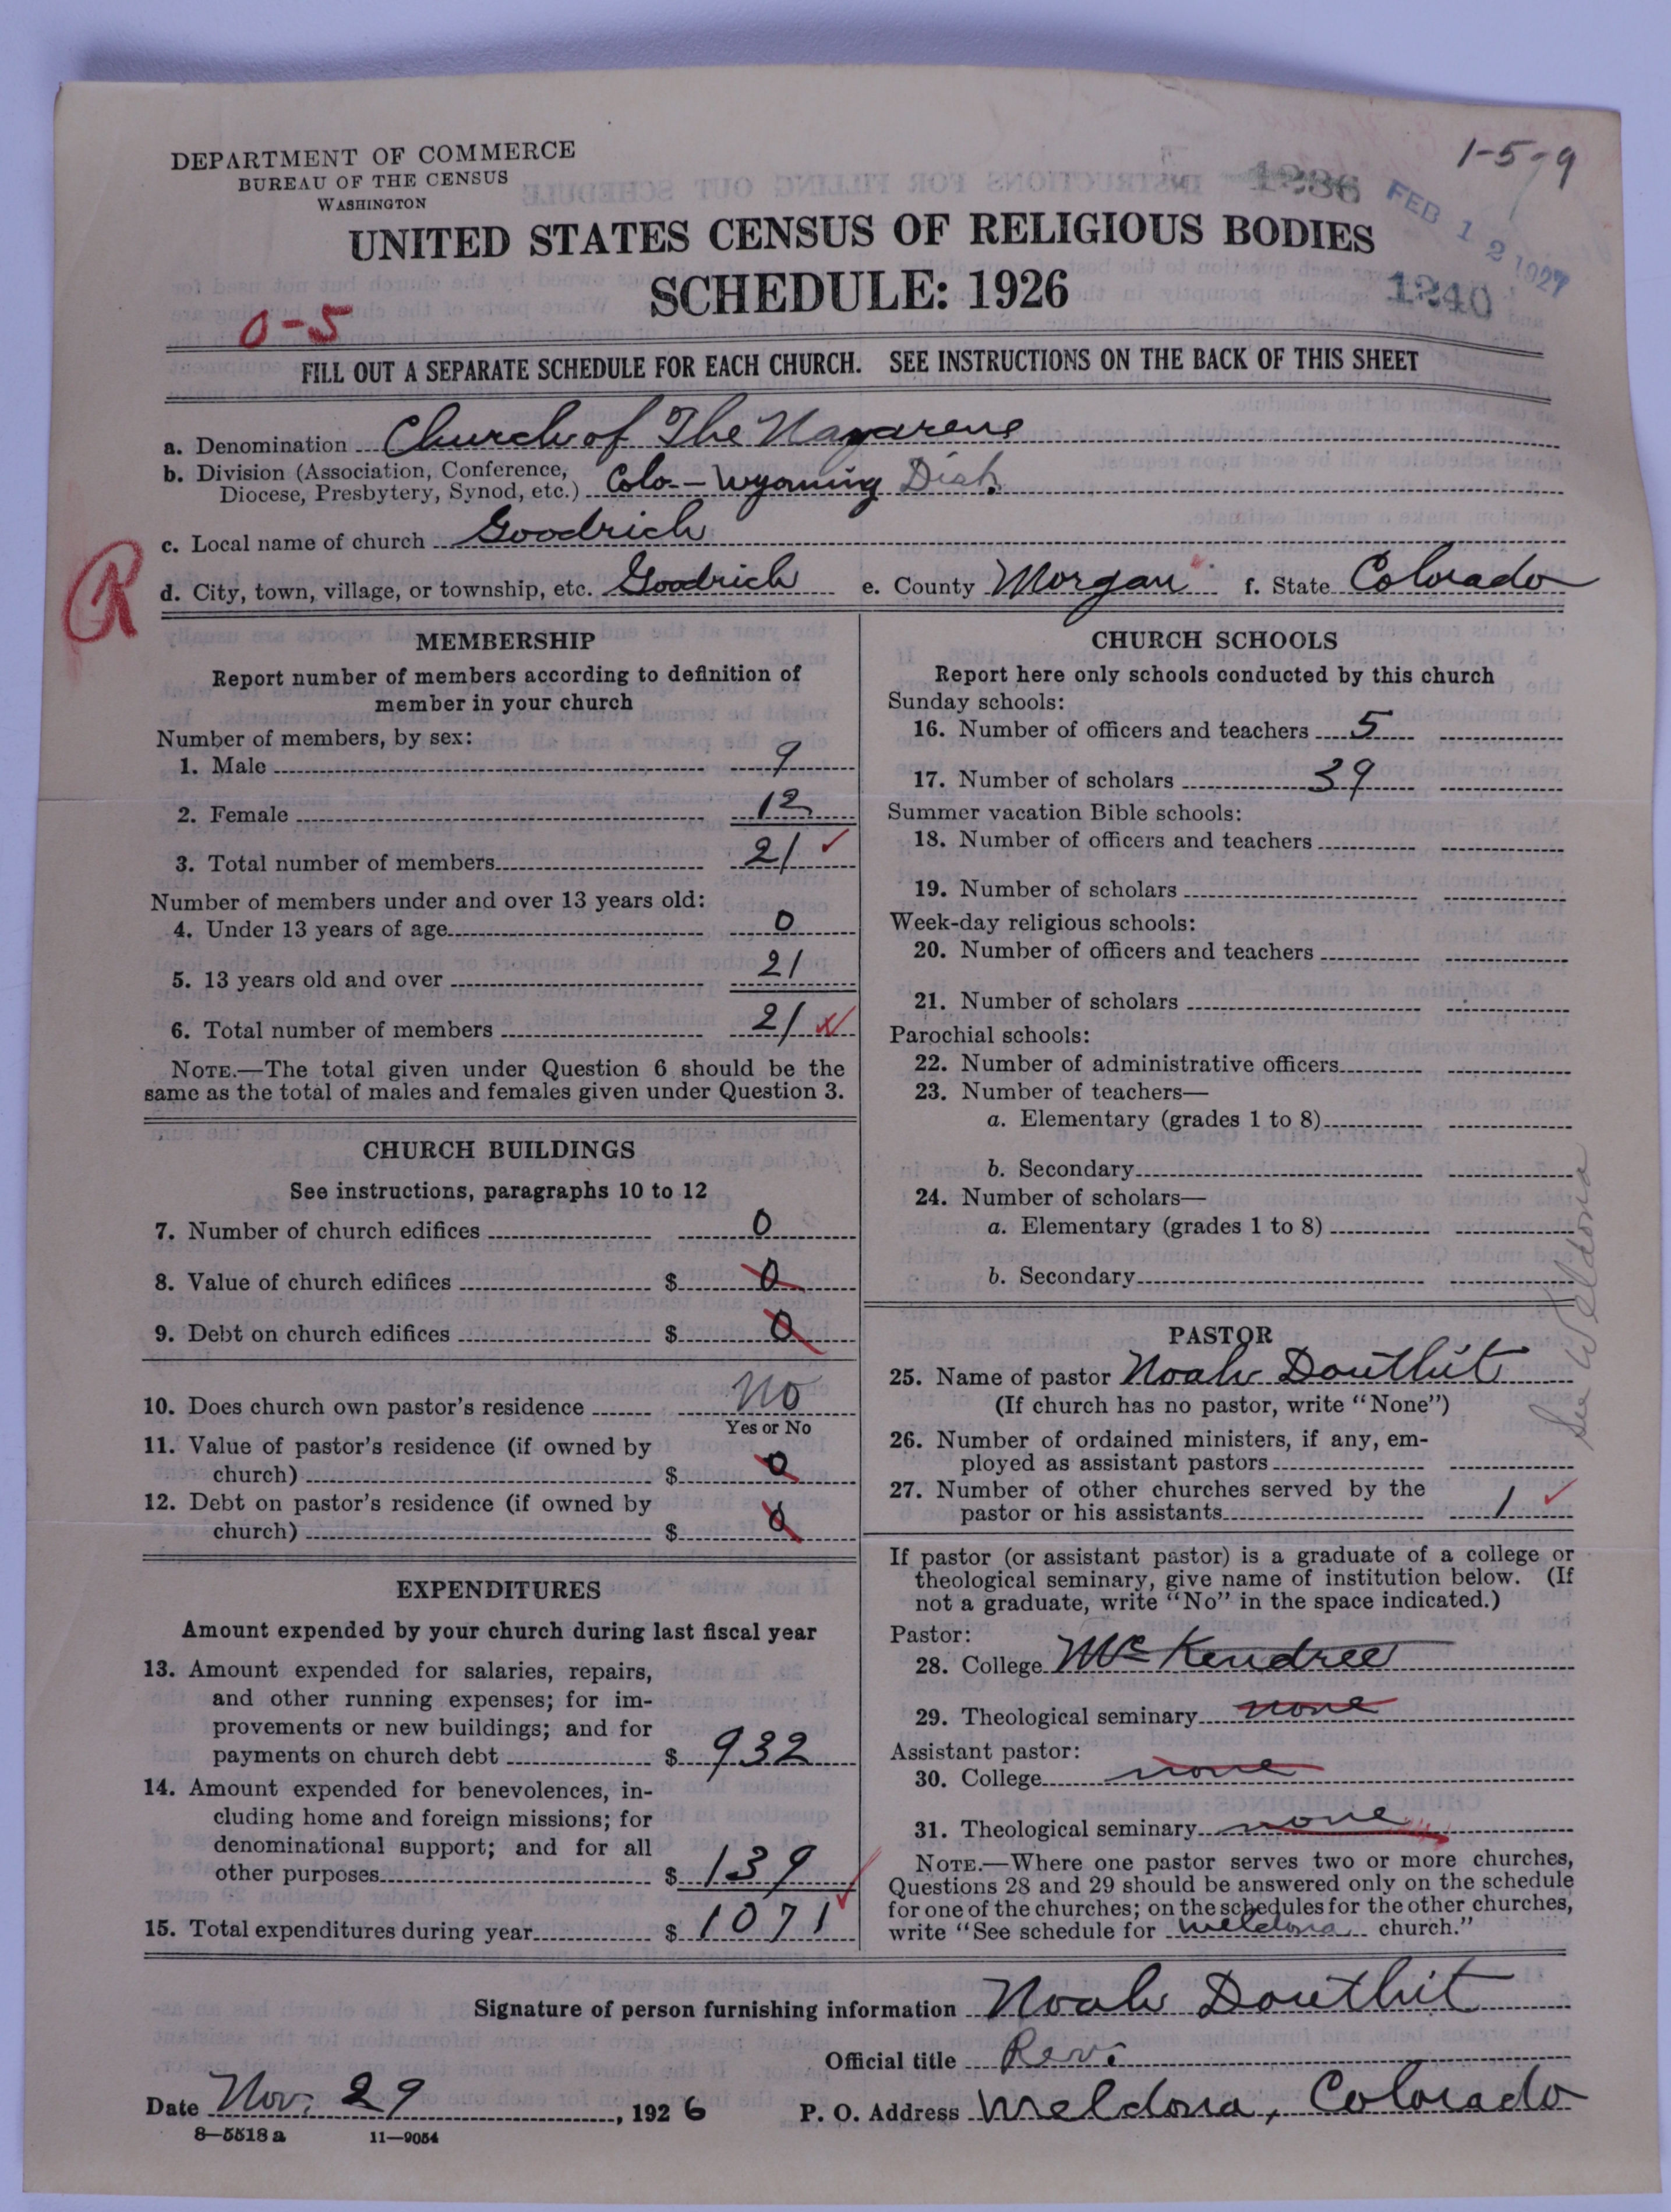 1-5-9
DEPARTMENT OF COMMERCE
BUREAU OF THE CENSUS
WASHINGTON
1236
FEB 12 1927
UNITED STATES CENSUS OF RELIGIOUS BODIES
SCHEDULE: 1926
1240
0-5
FILL OUT A SEPARATE SCHEDULE FOR EACH CHURCH. SEE INSTRUCTIONS ON THE BACK OF THIS SHEET
a. Denomination Church of The Nazarene
b. Division (Association, Conference,
Diocese, Presbytery, Synod, etc.) Colo-Wyoming Dist.
c. Local name of church Goodrich
R
d. City, town, village, or township, etc. Goodrich e. County Morgan f. State Colorado
MEMBERSHIP
Report number of members according to definition of
member in your church
Number of members, by sex:
1. Male 9
2. Female 12
3. Total number of members 21
Number of members under and over 13 years old:
4. Under 13 years of age 0
5. 13 years old and over 21
6. Total number of members 21
NOTE.—The total given under Question 6 should be the
same as the total of males and females given under Question 3.
CHURCH BUILDINGS
See instructions, paragraphs 10 to 12
7. Number of church edifices 0
8. Value of church edifices $ 0
9. Debt on church edifices $ 0
10. Does church own pastor's residence No
Yes or No
11. Value of pastor's residence (if owned by
church) $ 0
12. Debt on pastor's residence (if owned by
church) $ 0
EXPENDITURES
Amount expended by your church during last fiscal year
13. Amount expended for salaries, repairs,
and other running expenses; for im-
provements or new buildings; and for
payments on church debt $ 932
14. Amount expended for benevolences, in-
cluding home and foreign missions; for
denominational support; and for all
other purposes $ 139
15. Total expenditures during year $ 1071
CHURCH SCHOOLS
Report here only schools conducted by this church
Sunday schools:
16. Number of officers and teachers 5
17. Number of scholars 39
Summer vacation Bible schools:
18. Number of officers and teachers
19. Number of scholars
Week-day religious schools:
20. Number of officers and teachers
21. Number of scholars
Parochial schools:
22. Number of administrative officers
23. Number of teachers—
a. Elementary (grades 1 to 8)
b. Secondary
24. Number of scholars—
a. Elementary (grades 1 to 8)
b. Secondary
See Weldona
PASTOR
25. Name of pastor Noah Douthit
(If church has no pastor, write "None")
26. Number of ordained ministers, if any, em-
ployed as assistant pastors
27. Number of other churches served by the
pastor or his assistants 1
If pastor (or assistant pastor) is a graduate of a college or
theological seminary, give name of institution below. (If
not a graduate, write "No" in the space indicated.)
Pastor:
28. College McKendree
29. Theological seminary none
Assistant pastor:
30. College none
31. Theological seminary none
NOTE.—Where one pastor serves two or more churches,
Questions 28 and 29 should be answered only on the schedule
for one of the churches; on the schedules for the other churches,
write "See schedule for Weldona church."
Signature of person furnishing information Noah Douthit
Official title Rev.
Date Nov. 29, 1926 P. O. Address Weldona, Colorado
8-5518 a 11-9054